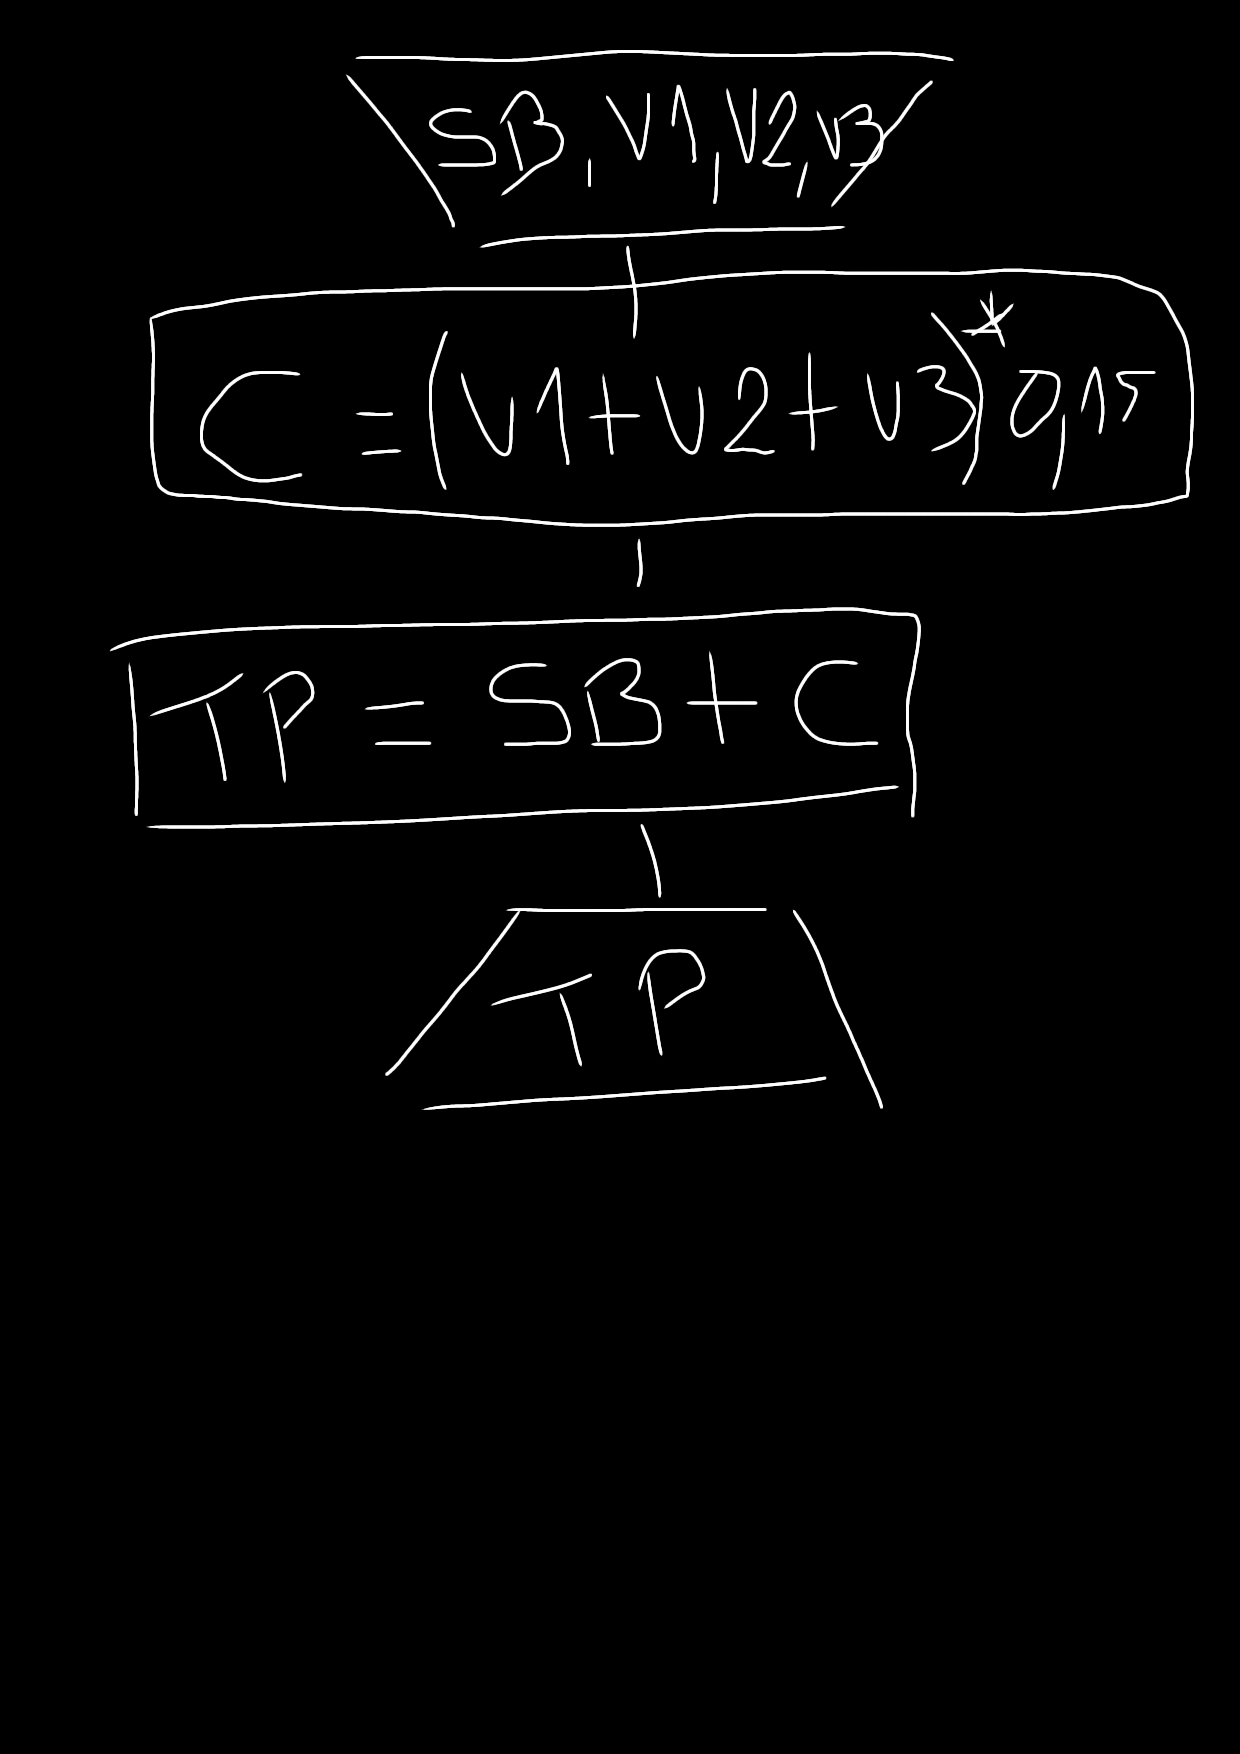 SB, V1, V2, V3
C = (V1 + V2 + V3) * 0,15
TP = SB + C
TP